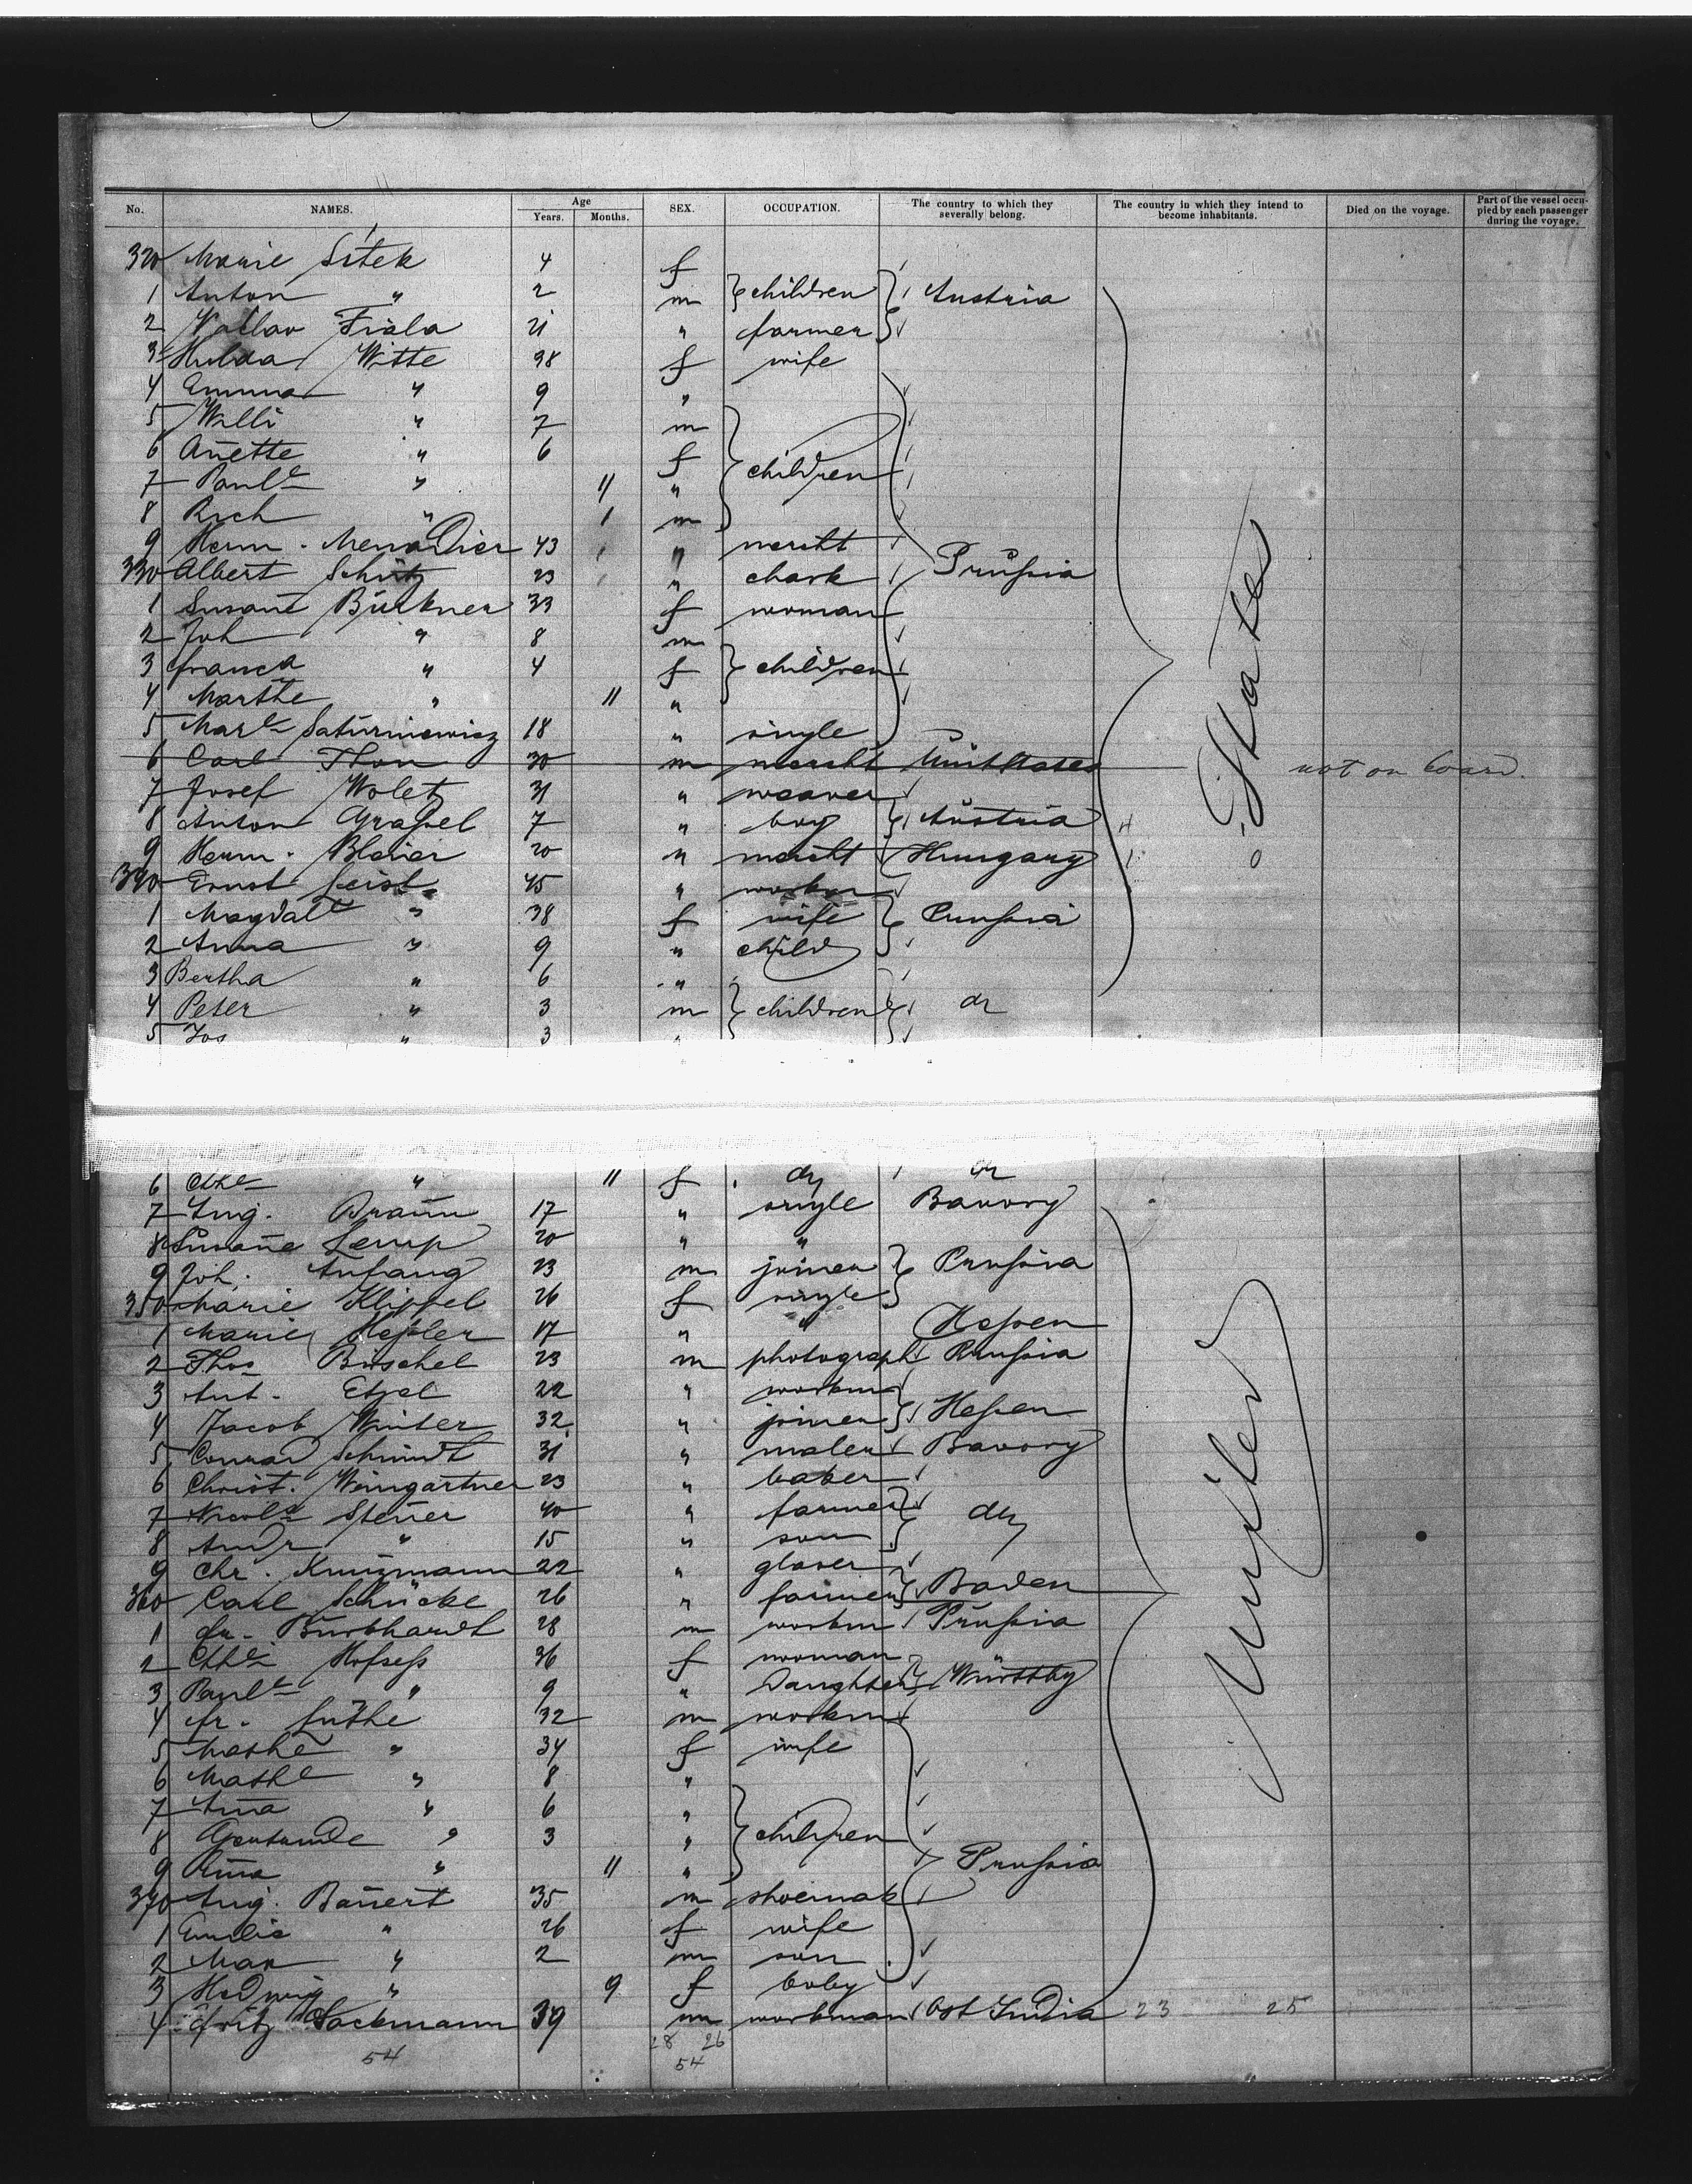 No. NAMES. Age Years. Months. SEX. OCCUPATION. The country to which they severally belong. The country in which they intend to become inhabitants. Died on the voyage. Part of the vessel occupied by each passenger during the voyage.
320 Marie Sitek 4 f
1 Anton " 2 m children Austria
2 Watlav Fiala 21 " farmer
3 Hulda Witte 38 f wife
4 Emma " 9 "
5 Willi " 7 m
6 Anette " 6 f children
7 Paul^e " 11 "
8 Rich " 1 m
9 Herm. Menadier 43 " mercht
330 Albert Schütz 23 " Prussia
1 Susane Bürkner 33 f woman
2 Joh " 8 m
3 Franca " 4 f children
4 Marthe " 11 "
5 Mar^e Saturniewicz 18 " single
6 Carl Thon 30 m mercht Unit States not on board.
7 Josef Wolet 31 " weaver
8 Anton Grassel 7 " boy Austria
9 Herm. Blaier 20 " mercht Hungary
340 Ernst Geist 45 " workm
1 Magdal^e " 38 f wife Prussia
2 Anna " 9 " child
3 Bertha " 6 "
4 Peter " 3 m children do
5 Jos " 3 "
States
6 Cth^e " 11 f do do
7 Aug. Braun 17 " single Bavory
8 Susane Lemp 20 " "
9 Joh. Anfang 23 m joiner Prussia
350 Marie Klippel 26 f single
1 Marie Hessler 17 " " Hessen
2 Thos Büschel 23 m photograph Prussia
3 Ant. Etzel 22 " workm
4 Jacob Winter 32 " joiner Hessen
5 Conrad Schmidt 31 " maler Bavory
6 Christ. Weingärtner 23 " baker
7 Nicol^s Steuer 40 " farmer do
8 Andr " 15 " son
9 Chr. Kunzmann 22 " glaser
360 Carl Schücke 26 " farmer Baden
1 Fr. Burkhardt 28 m workm Prussia
2 Cth^e Hofsess 36 f woman
3 Paul^e " 9 " Daughter Württbg
4 Fr. Luthe 32 m workm
5 Mathe " 34 f wife
6 Math^e " 8 "
7 Ana " 6 "
8 Gertrude " 3 " children
9 Ema " 11 " Prussia
370 Aug. Banert 35 m shoemak
1 Emilie " 26 f wife
2 Max " 2 m son
3 Hedwig " 9 f baby
4 Fritz Sackmann 39 m workman Ost India 23 25
United
54 28 26
54